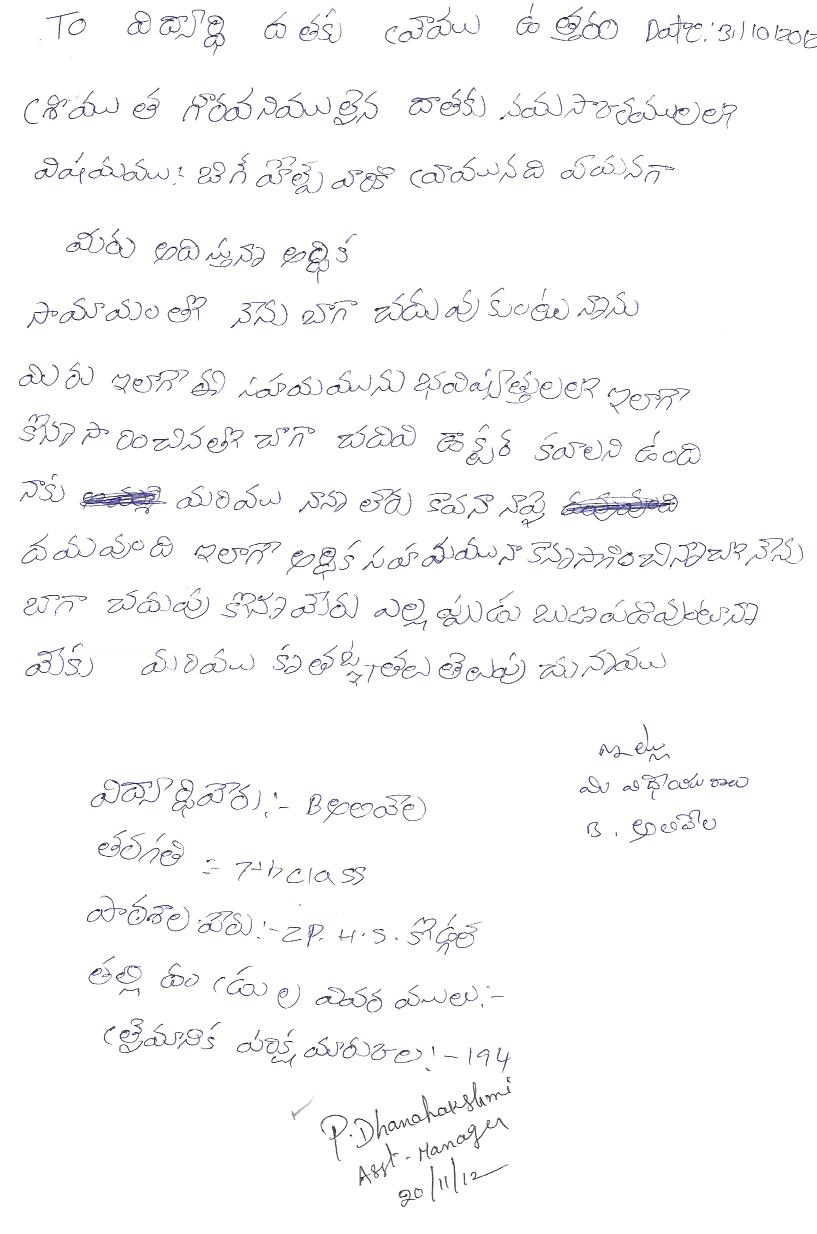 To విద్యార్థి దతకు వ్రాయు ఉత్తరం Date: 31/10/2012
గౌరవనియులైన దాతకు
విషయము: బిగీ హెల్ప్ వారికి వ్రాయునది ఏమనగా
మీరు అదిస్తునా అర్ధిక
సామాయం తో నేను బాగా చదువుకుంటునాను
మీరు ఇలాగా ఈ సహయమును భవిషత్తులలో ఇలాగా
చాగా చదివి డాక్టర్ కవాలని ఉంది
నాకు మరియు నానా లేరు కావనా నాపై
దయవుంది ఇలాగా అర్ధిక సహయమునా కొనసాగించినాచో నేను
బాగా చదువు కొనా మీరు ఎల్లప్పుడు బుణపడివుంటునా
మీకు మరియు కృతజ్ఞతలు తెలుపు చునాము
ఇట్లు
మీ విధేయురాలు
B. అలివేల
విద్యార్ధిపేరు:- B అలివేల
తరగతి :- 7th class
పాఠశాల పేరు:- Z.P.H.S. కొడ్గల్
తల్లి తండ్రుల వివరములు:-
త్రైమాసిక పరిక్ష మారుకులు:- 194
P. Dhanalakshmi
Asst-Manager
20/11/12